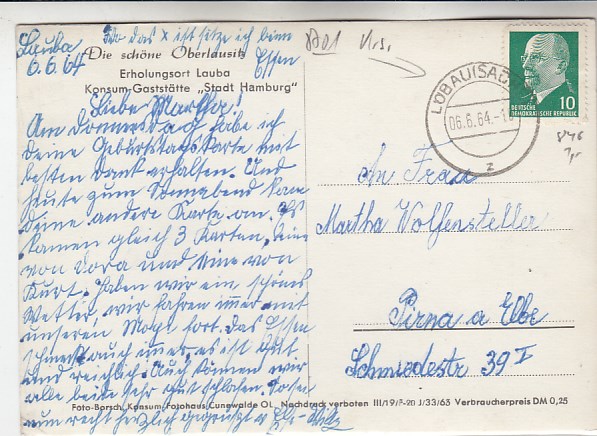 Lauba Wo das x ist sitze ich beim
6.6.64 Essen
Die schöne Oberlausitz
Erholungsort Lauba
Konsum-Gaststätte „Stadt Hamburg"
Liebe Martha!
Am Donnerstag habe ich
Deine Geburtstagskarte mit
besten Dank erhalten. Und
heute zum Sonnabend kam
Deine andere Karte an. Es
kamen gleich 3 Karten. Eine
von Dora und eine von
Kurt. Haben wir ein schönes
Wetter, wir fahren immer mit
unseren Mopi fort. Das Essen
schmeckt auch immer, es ist gut
und reichlich. Auch können wir
alle beide sehr gut schlafen.
nun recht herzlich gegrüßt
Foto-Borsch, Konsum-Fotohaus Cunewalde OL. Nachdruck verboten III/19/P-20 J/33/63 Verbraucherpreis DM 0,25
8701
DEUTSCHE
DEMOKRATISCHE REPUBLIK
10
LÖBAU(SACHS
06.6.64.-1
z
846
An Frau
Martha Wolfensteller
Pirna a Elbe
Schmiedestr 39 I